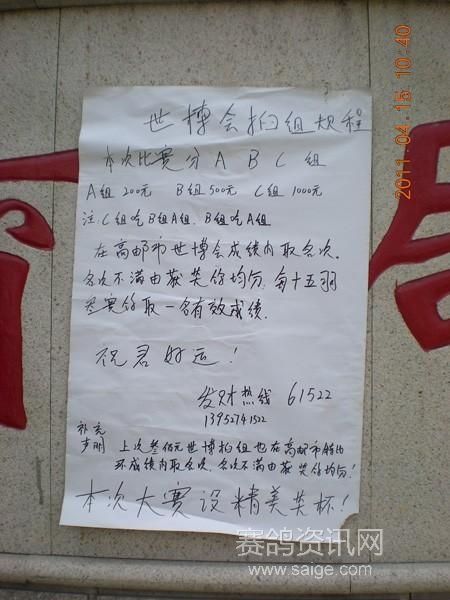 2011.04.15 10:40
世博会拍组规程
本次比赛分 A B C 组
A组 200元 B组 500元 C组 1000元
注:C组吃B组A组. B组吃A组
在高邮市世博会成绩内取名次.
名次不满由获奖鸽均分. 每十五羽
参赛鸽取一名有效成绩.
祝君好运!
发财热线 61522
13952741522
补充
声明
上次叁佰元世博拍组也在高邮市
环成绩内取名次. 名次不满由获奖鸽均分!
本次大赛设精美奖杯!
赛鸽资讯网
www.saige.com